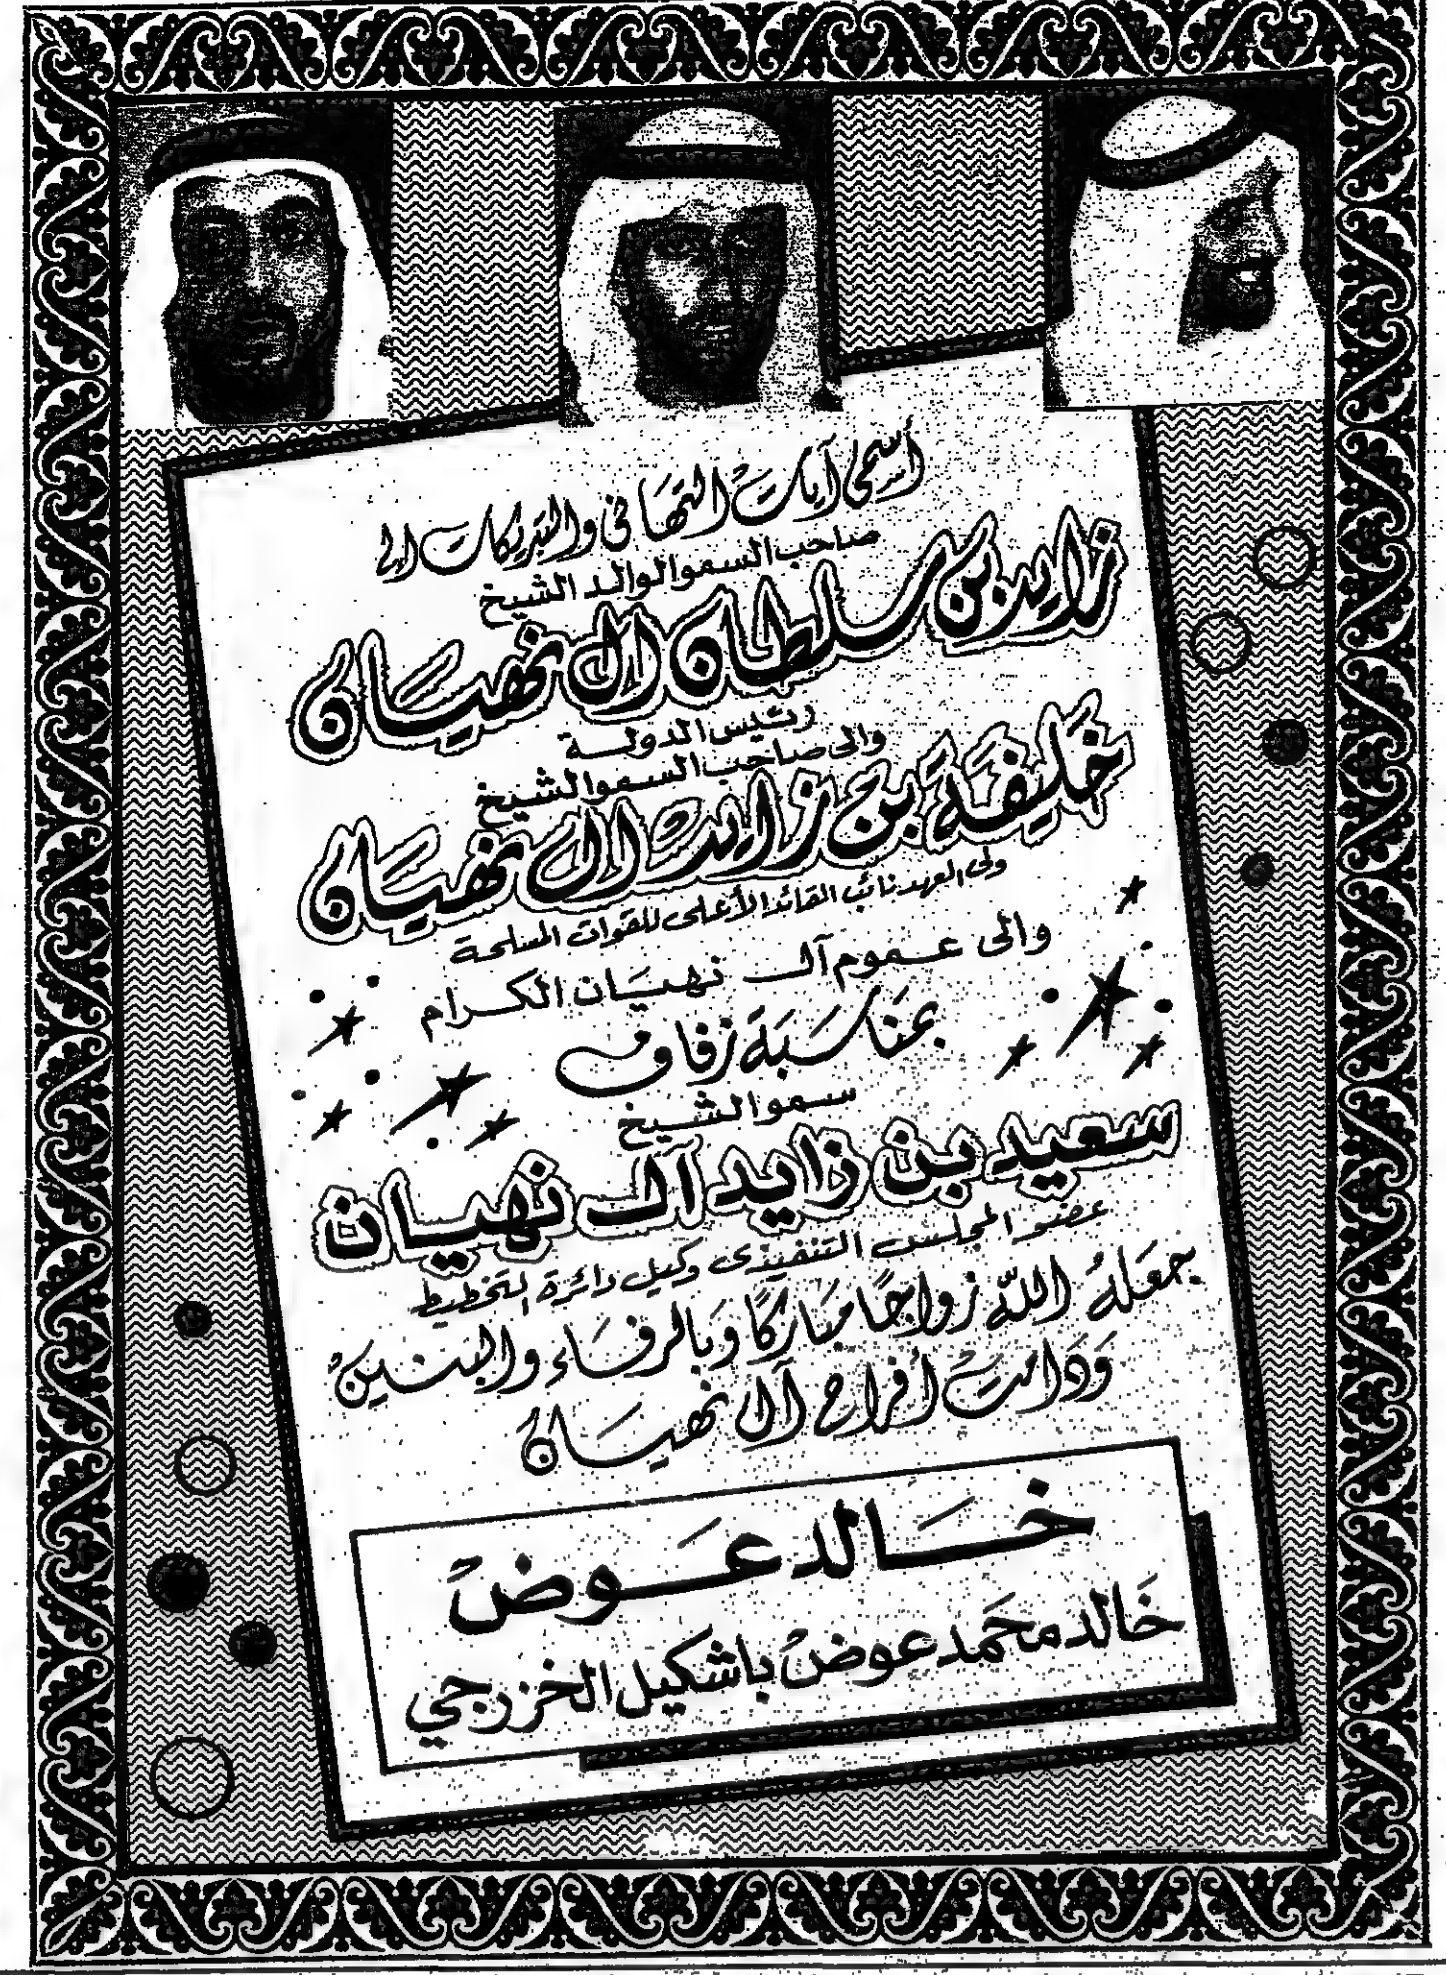 أسمى آيات التهاني والتبريكات إلى
صاحب السمو الوالد الشيخ
زايد بن سلطان آل نهيان
رئيس الدولة
والى صاحب السمو الشيخ
خليفة بن زايد آل نهيان
ولى العهد نائب القائد الأعلى للقوات المسلحة
والى عموم آل نهيان الكرام
بمناسبة زفاف
سمو الشيخ
سعيد بن زايد آل نهيان
عضو المجلس التنفيذى وكيل دائرة التخطيط
جعله الله زواجًا مباركًا وبالرفاء والبنين
ودامت أفراح آل نهيان
خالد عوض
خالد محمد عوض باشكيل الخزرجي